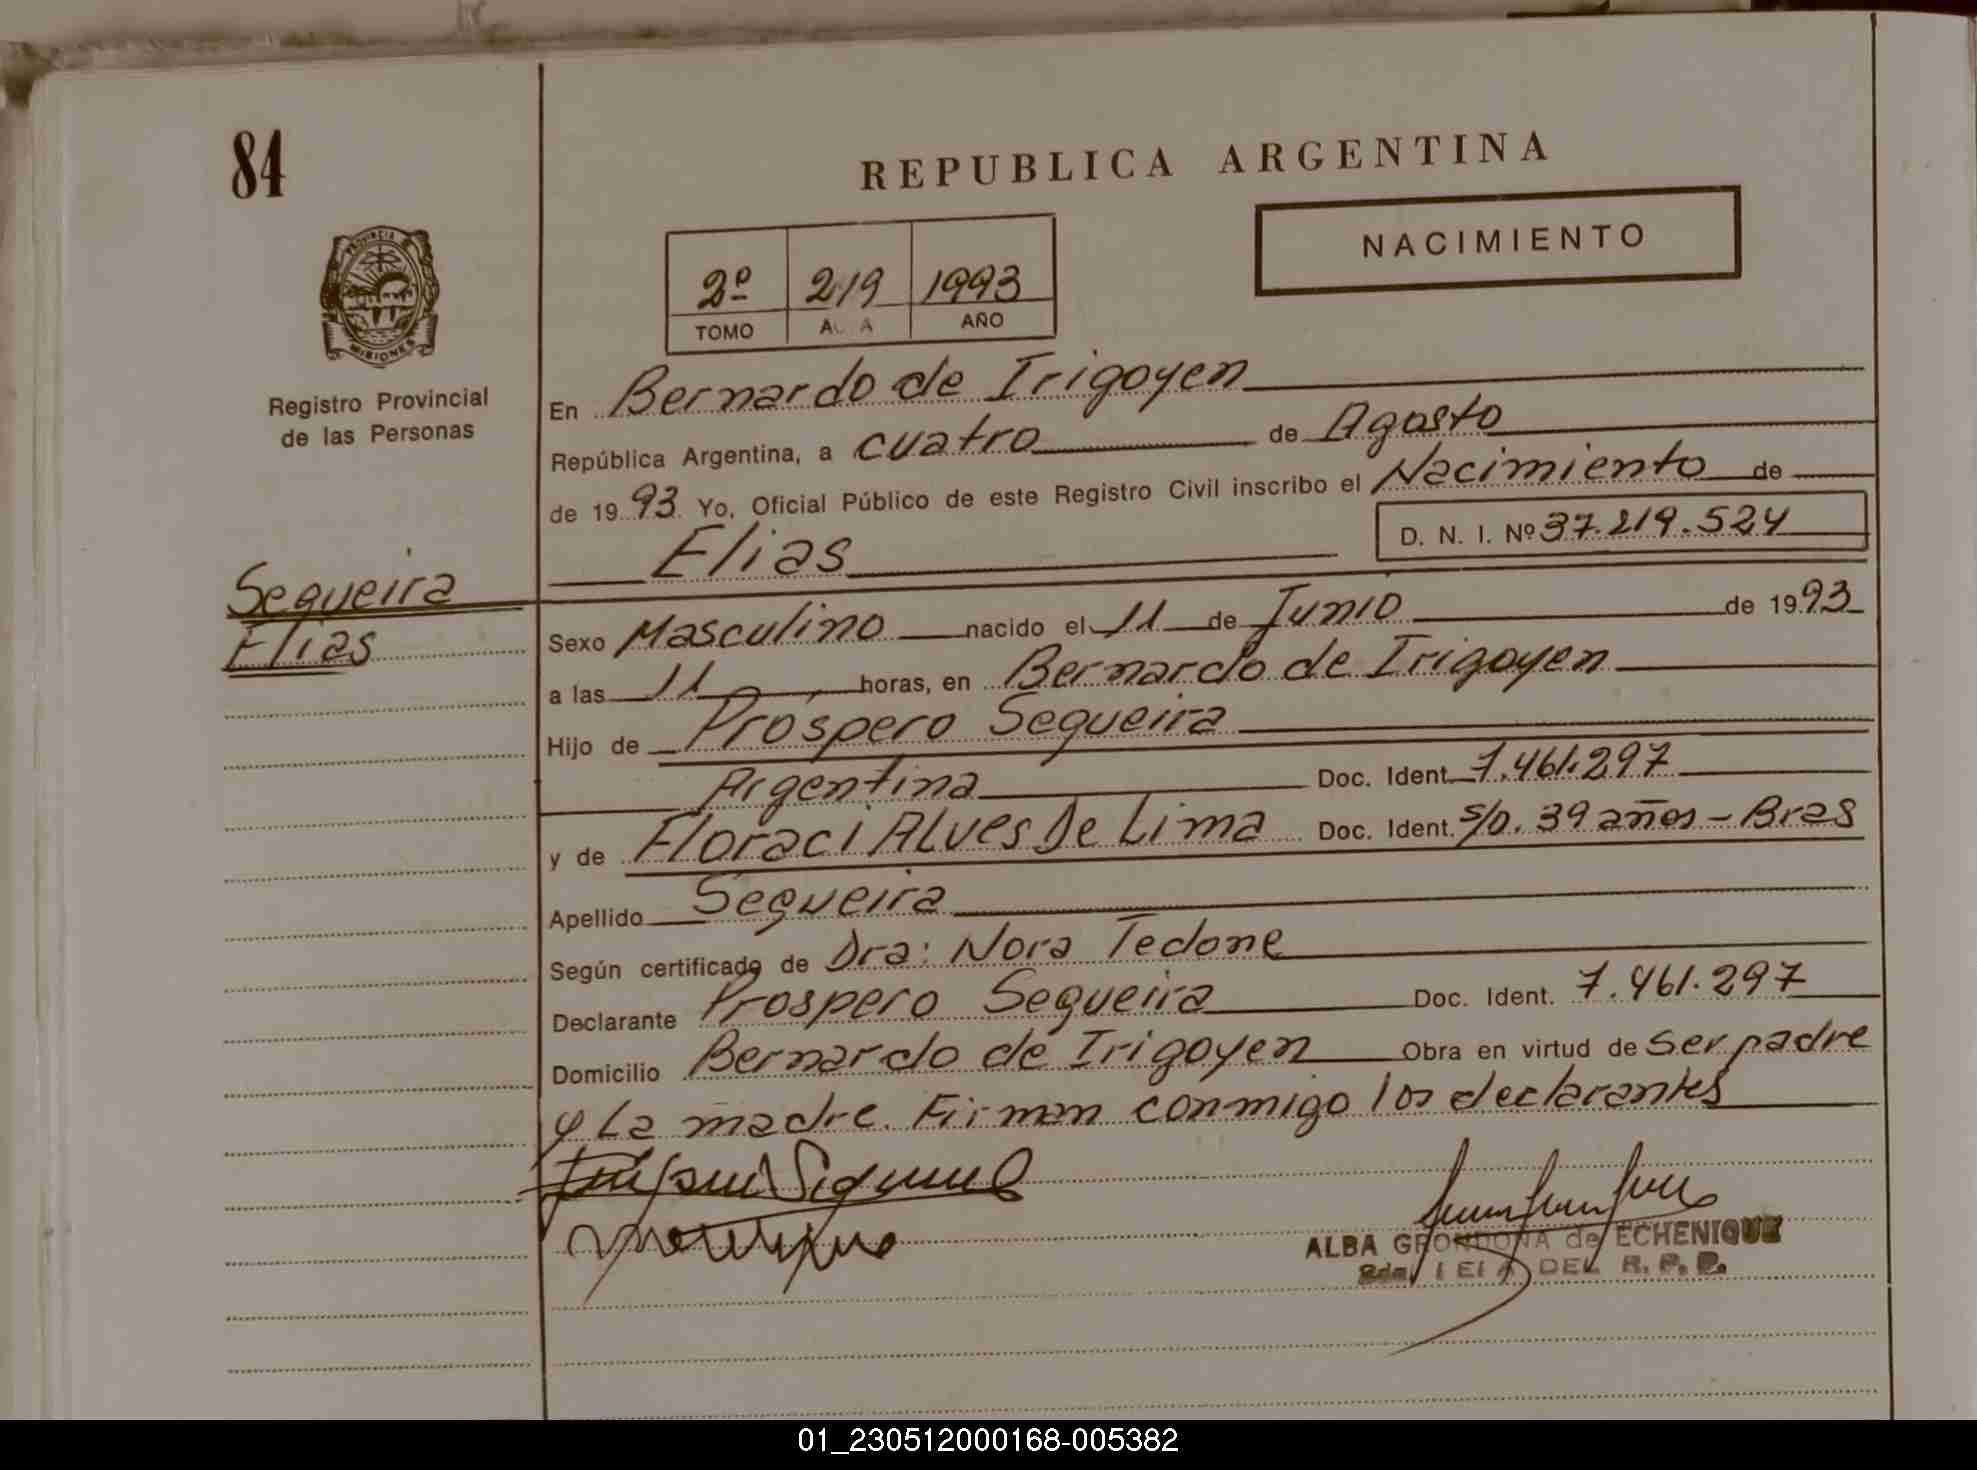 84
REPUBLICA ARGENTINA
NACIMIENTO
2º 219 1993
TOMO A A AÑO
PROVINCIA
MISIONES
Registro Provincial
de las Personas
En Bernardo de Irigoyen
República Argentina, a cuatro de Agosto
de 1993 Yo, Oficial Público de este Registro Civil inscribo el Nacimiento de
Elias D. N. I. Nº 37.219.524
Sequeira
Elias
Sexo Masculino nacido el 11 de Junio de 1993
a las 11 horas, en Bernardo de Irigoyen
Hijo de Próspero Sequeira
Argentina Doc. Ident. 7.461.297
y de Floraci Alves De Lima Doc. Ident. s/o. 39 años - Bras
Apellido Sequeira
Según certificado de Dra: Nora Tedone
Declarante Prospero Sequeira Doc. Ident. 7.461.297
Domicilio Bernardo de Irigoyen Obra en virtud de ser padre
y La madre. Firman conmigo los declarantes
ALBA GRONDONA de ECHENIQUE
DEL R. P. P.
01_230512000168-005382